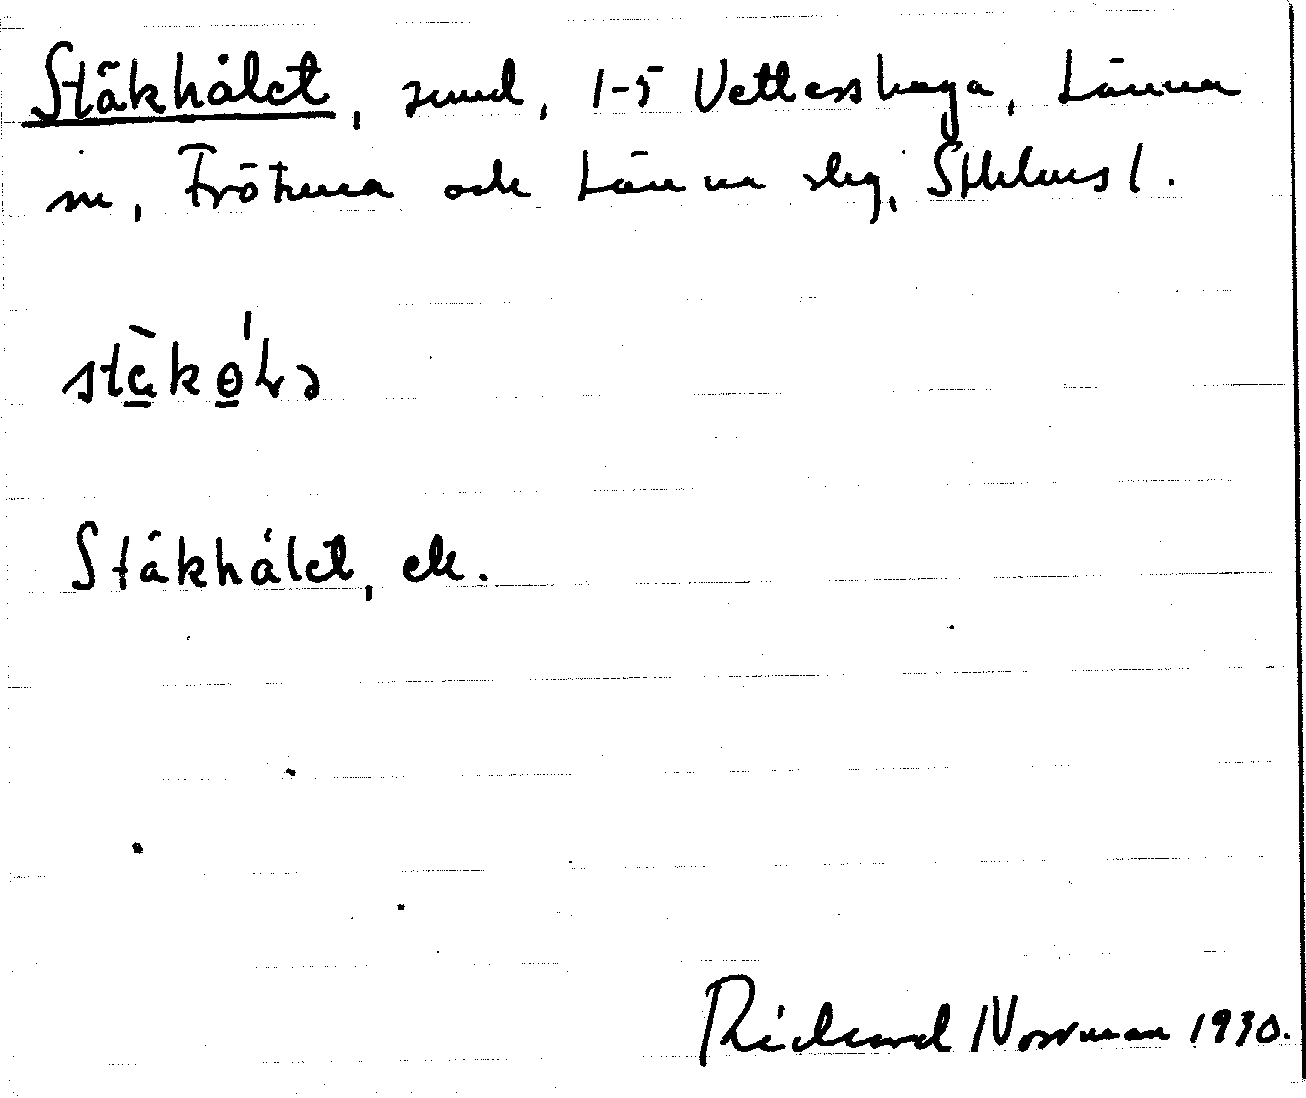 Stäkhålet, sund, 1-5 Vettershaga, Länna
sn, Frötuna och Länna slg, Sthlms l.
stäkǻlə
Stäkhålet, ek.
Rickard Norrman 1930.